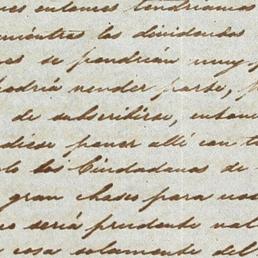 nces entonces tendriamos
mientras los dividendos
es se pondrian muy
podria vender parte,
de subscribirse, enton
diese poner allí con to
lo los Ciudadanos de
gran chasco para us
co seria prudente val
cosa solamente del